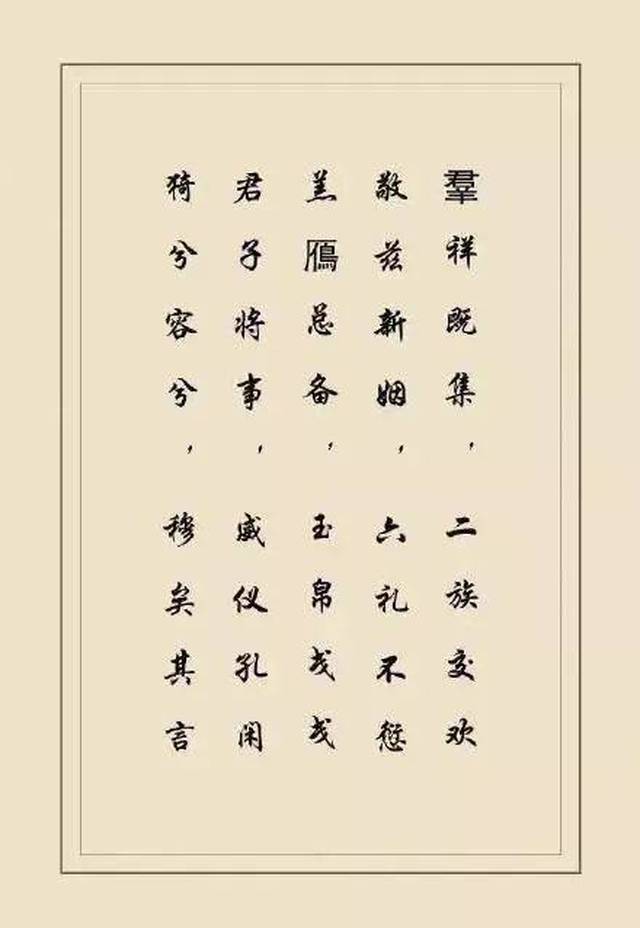 羣祥既集，二族交欢
敬兹新姻，六礼不愆
羔鴈总备，玉帛戋戋
君子将事，威仪孔闲
猗兮容兮，穆矣其言